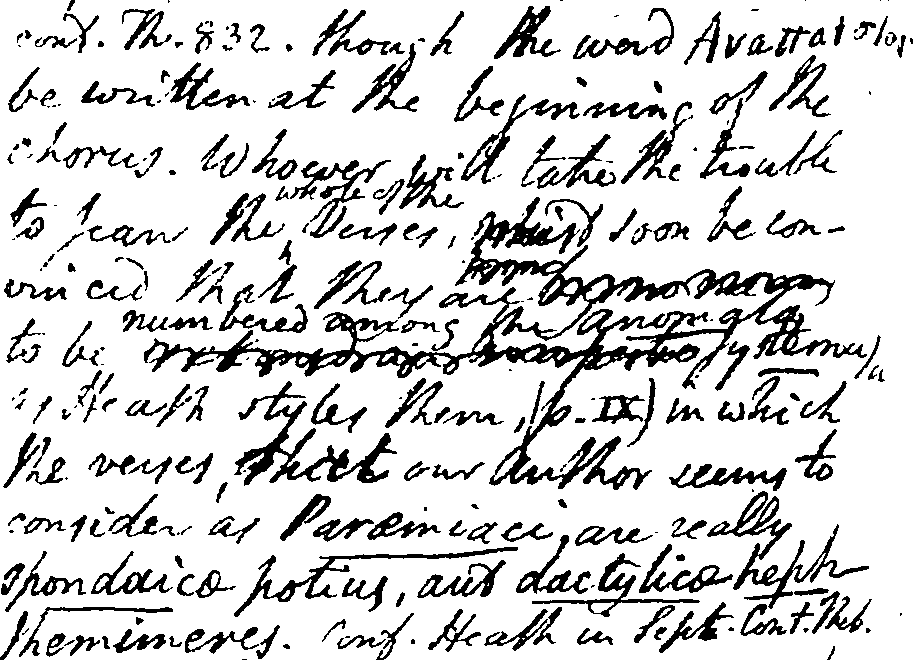 conf. Th. 832. though the word Αναπαιστοι
be written at the beginning of the
chorus. Whoever will take the trouble
whole of the
to scan the Verses, will soon be con-
vinced that they are
numbered among the anomala
to be systemata
as Heath styles them, (p. IX) in which
the verses, which our author seems to
consider as Parœmiaci, are really
spondaicæ potius, aut dactylicæ heph
themimeres. Conf. Heath in Sept. Cont. Theb.